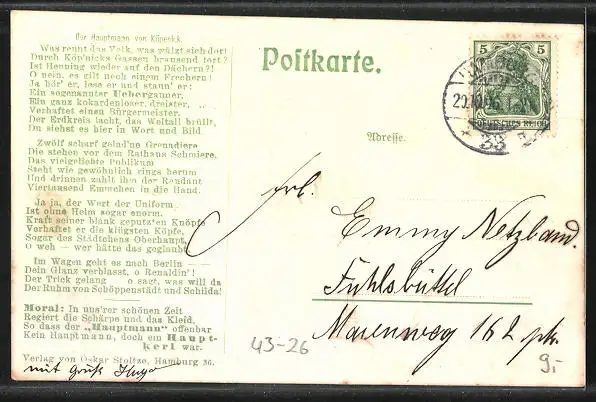 Der Hauptmann von Köpenick.
Was rennt das Volk, was wälzt sich dort
Durch Köp'nicks Gassen brausend fort?
Ist Henning wieder auf den Dächern?!
O nein, es gilt noch einem Frechern!
Ja hör' er, lese er und staun' er:
Ein sogenannter Uebergauner,
Ein ganz kokardenloser, dreister,
Verhaftet einen Bürgermeister.
Der Erdkreis lacht, das Weltall brüllt,
Du siehst es hier in Wort und Bild.
Zwölf scharf gelad'ne Grenadiere
Die stehen vor dem Rathaus Schmiere,
Das vielgeliebte Publikum
Steht wie gewöhnlich rings herum
Und drinnen zahlt ihm der Rendant
Viertausend Emmchen in die Hand.
Ja ja, der Wert der Uniform
Ist ohne Helm sogar enorm.
Kraft seiner blank geputz'ten Knöpfe
Verhaftet er die klügsten Köpfe,
Sogar des Städtchens Oberhaupt,
O weh — wer hätte das geglaubt
Im Wagen geht es nach Berlin — —
Dein Glanz verblasst, o Renaldin'!
Der Trick gelang — o sagt, was will da
Der Ruhm von Schöppenstädt und Schilda!
Moral: In uns'rer schönen Zeit
Regiert die Schärpe und das Kleid,
So dass der „Hauptmann" offenbar
Kein Hauptmann, doch ein Haupt-
kerl war.
Verlag von Oskar Stoltze, Hamburg 36.
mit Gruß Hugo
Postkarte.
5 5
DEUTSCHES REICH
33
Adresse.
Frl.
Emmy Netzband.
Fuhlsbüttel
Maienweg 162 ptr.
43-26
9,-